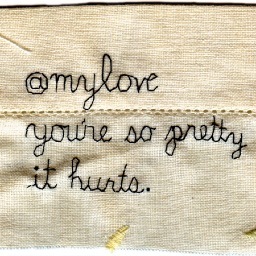 @mylove
you're so pretty
it hurts.